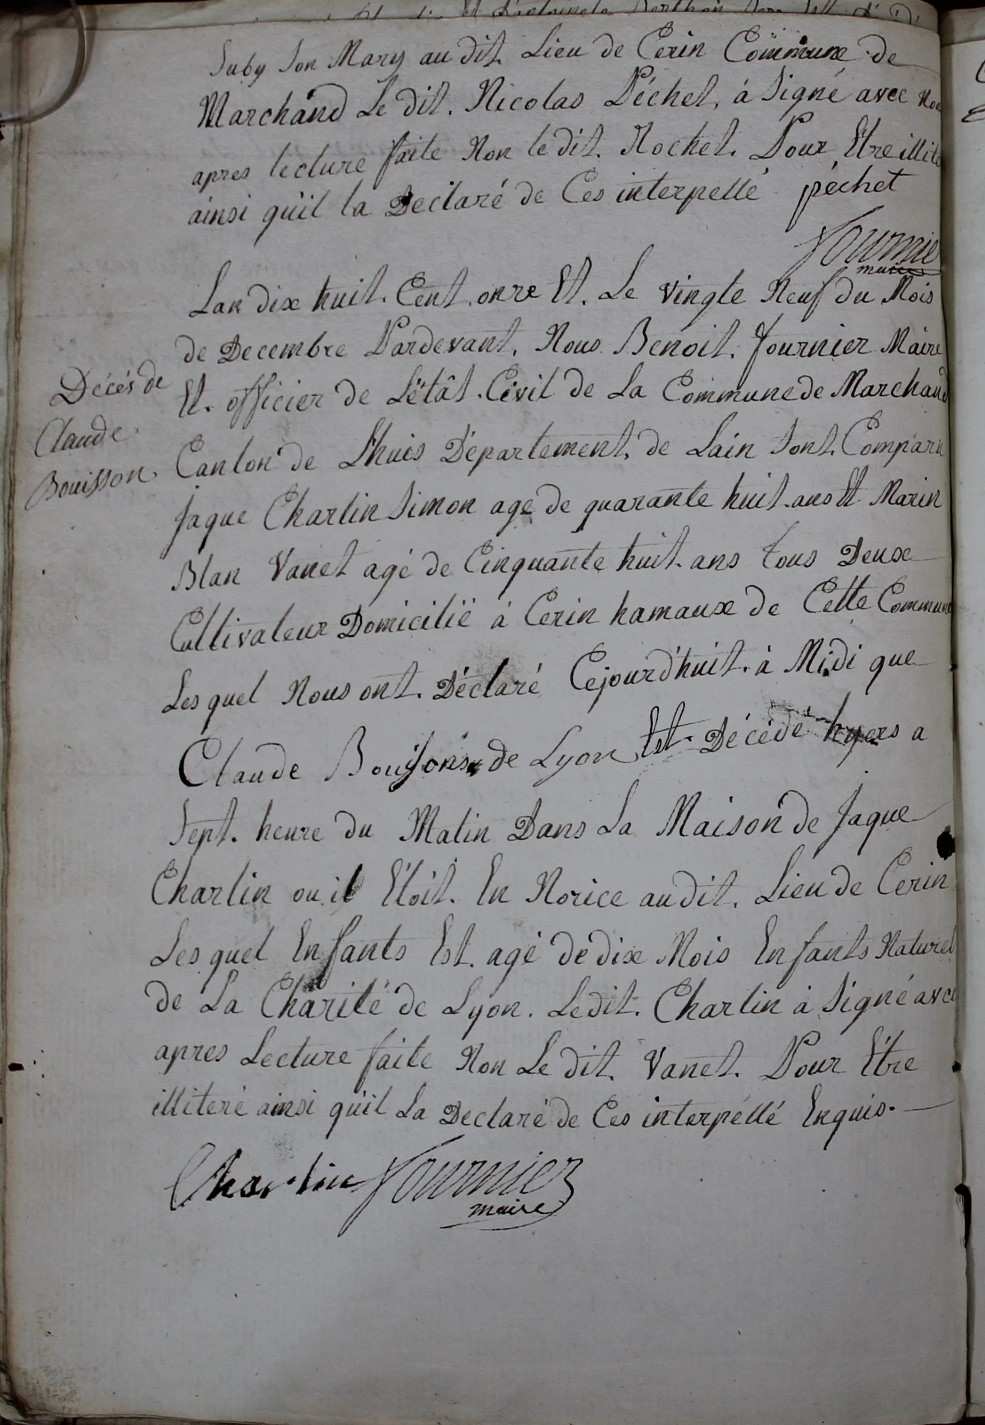 Suby Son Mary au dit Lieu de Cerin Commune de
Marchand Le dit. Nicolas Péchet, à Signé avec Nou
apres lecture faite Non le dit. Rochet. Pour Etre illite
ainsi quil la Declaré de Ces interpellé péchet
Fournie
maire
Lan dix huit. Cent. onze Et. Le vingte Neuf du Mois
de Decembre Pardevant. Nous Benoit. fournier Maire
Et. officier de Lëtât. Civil de La Commune de Marchand
Décés de
Claude
Bouisson.
Canton de Lhuis Département. de Lain Sont. Comparu
Jaque Charlin Simon age de quarante huit. ans Et Marin
Blan Vanet agé de Cinquante huit. ans tous Deux
Cultivateur Domicilië à Cerin hamaux de Cette Commune
Les quel Nous ont. Déclaré Cejourdhuit. à Midi que
Claude Bouisons de Lyon Est. Décéde hyers a
Sept. heure du Matin Dans La Maison de Jaque
Charlin ou il Etoit. En Norice au dit. Lieu de Cerin
Les quel Enfants Est. agé de dix Mois Enfants Naturel
de La Charité de Lyon. Ledit. Charlin à Signé avec
apres Lecture faite Non Le dit. Vanet. Pour Etre
illiteré ainsi quil La Declaré de Ces interpéllé Enquis.
Charlin Fournier
maire